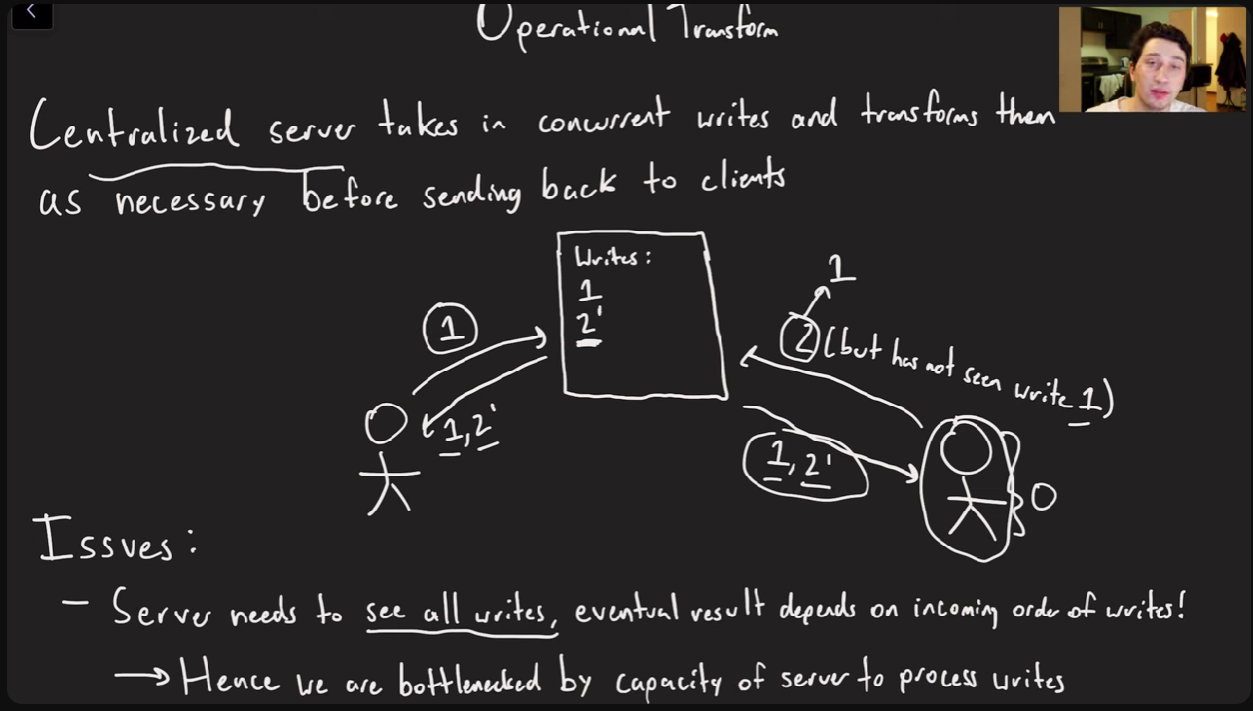 Operational Transform
Centralized server takes in concurrent writes and transforms them
as necessary before sending back to clients
Writes:
1
2'
1
1
2 (but has not seen write 1)
1, 2'
1, 2'
0
Issues:
- Server needs to see all writes, eventual result depends on incoming order of writes!
→ Hence we are bottlenecked by capacity of server to process writes